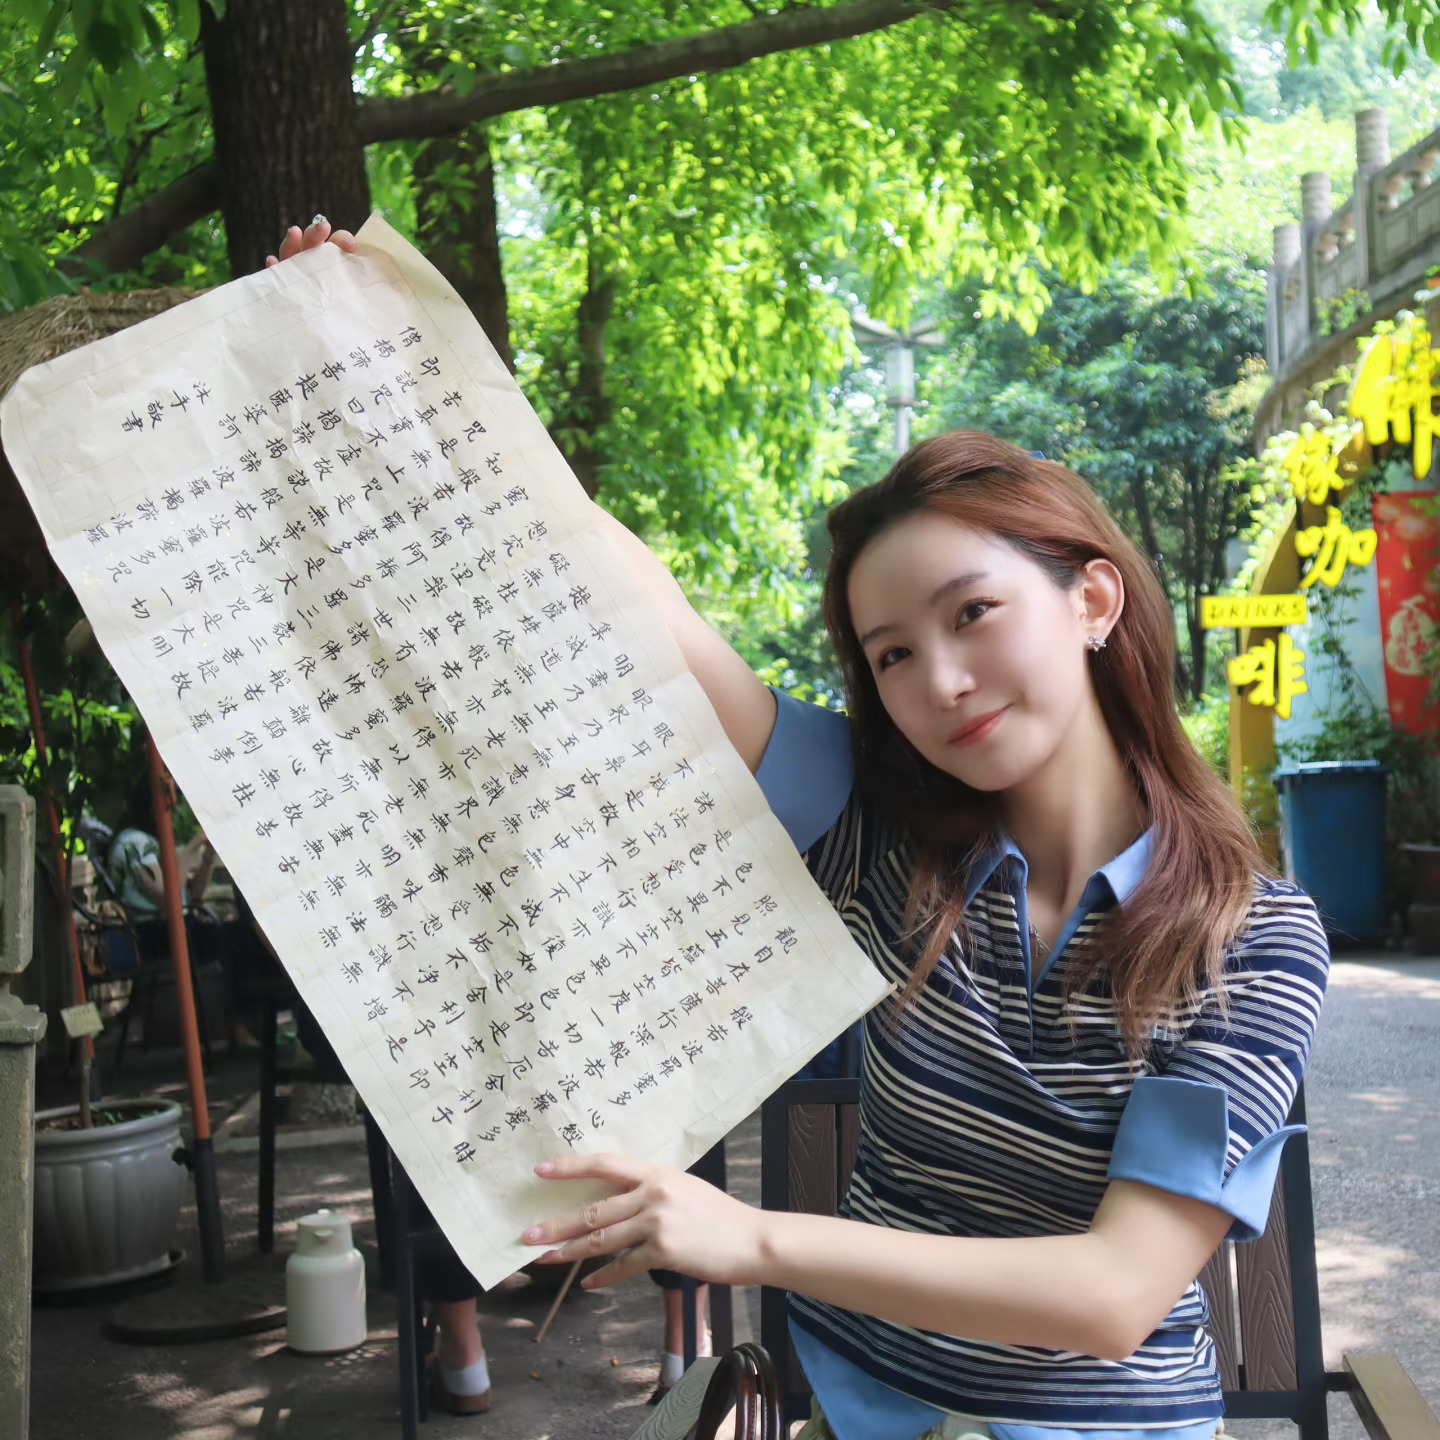 般若波羅蜜多心經
觀自在菩薩行深般若波羅蜜多時
照見五蘊皆空度一切苦厄舍利子
色不異空空不異色色即是空空即
是色受想行識亦復如是舍利子是
諸法空相不生不滅不垢不净不增
不減是故空中無色無受想行識無
眼耳鼻舌身意無色聲香味觸法無
眼界乃至無意識界無無明亦無無
明盡乃至無老死亦無老死盡無苦
集滅道無智亦無得以無所得故菩
提薩埵依般若波羅蜜多故心無挂
礙無挂礙故無有恐怖遠離顛倒夢
想究竟涅槃三世諸佛依般若波羅
蜜多故得阿耨多羅三藐三菩提故
知般若波羅蜜多是大神咒是大明
咒是無上咒是無等等咒能除一切
苦真實不虛故說般若波羅蜜多咒
即說咒曰揭諦揭諦波羅揭諦波羅
僧揭諦菩提薩婆訶
沐手敬書
佛缘咖啡
DRINKS